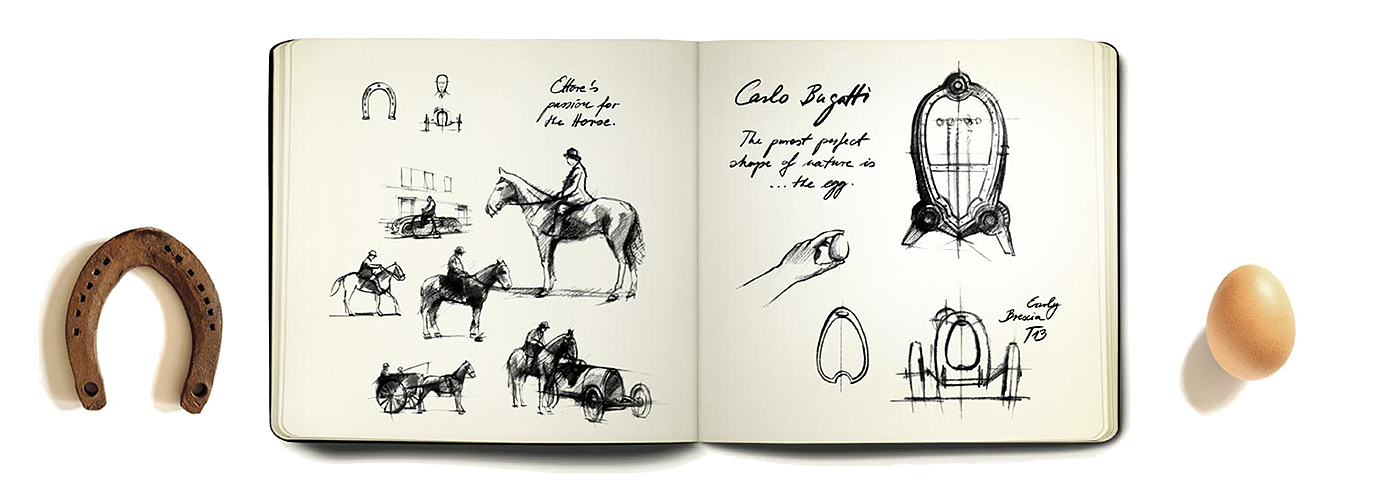 Ettore's
passion for
the Horse.
Carlo Bugatti
The purest perfect
shape of nature is
... the egg.
Early
Brescia
T13